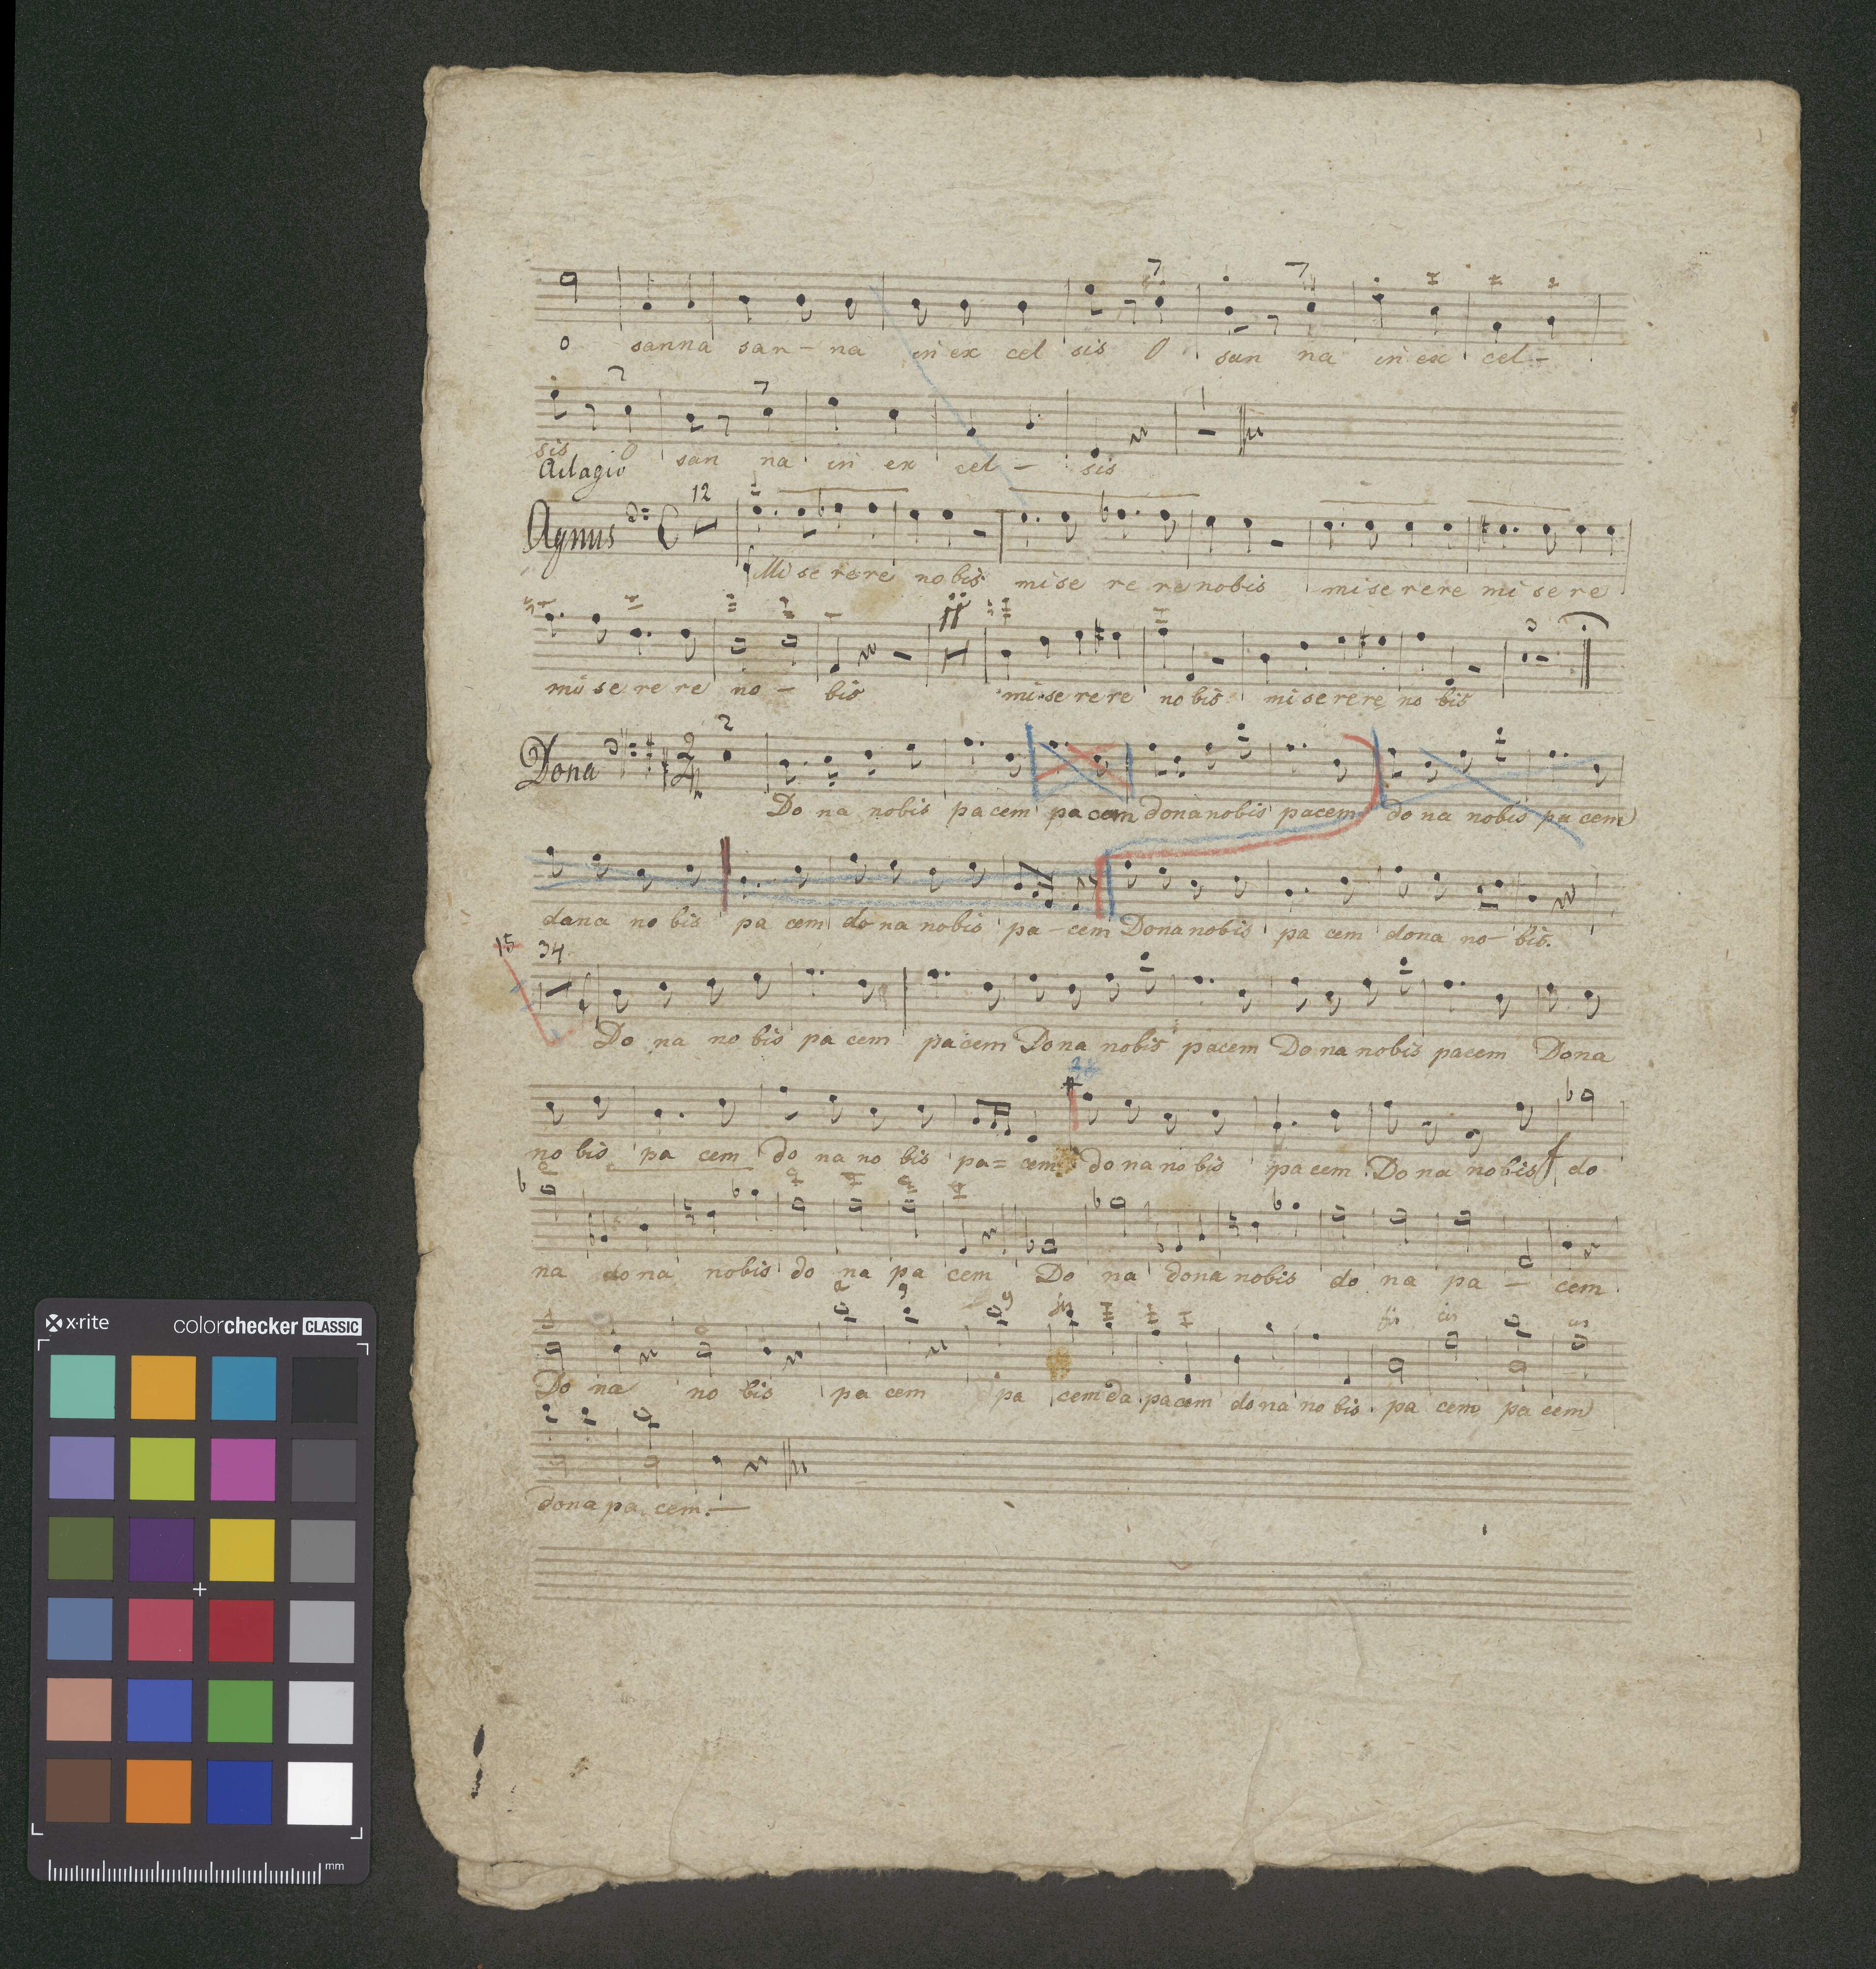 o sanna san - na in ex cel sis O san na in ex cel -
sis O san na in ex cel - sis
Adagio
12
Agnus
Mi se rere nobis mise re re nobis miserere mi se re
11
mi se re re no - bis mi se re re no bis mi se re re no bis
Dona 2
Do na nobis pacem pacem dona nobis pacem do na nobis pa cem
dona no bis pa cem do na nobis pa - cem Dona nobis pa cem dona no - bis.
15 34
Do na no bis pa cem pacem Dona nobis pacem Do na nobis pacem Dona
no bis pa cem do na no bis pa = cem do na no bis pa cem Do na nobis do
na do na nobis do na pa cem Do na dona nobis do na pa - cem
Do na no bis pa cem pa cem da pacem dona no bis pa cem pa cem
dona pa cem. —
x·rite colorchecker CLASSIC
mm